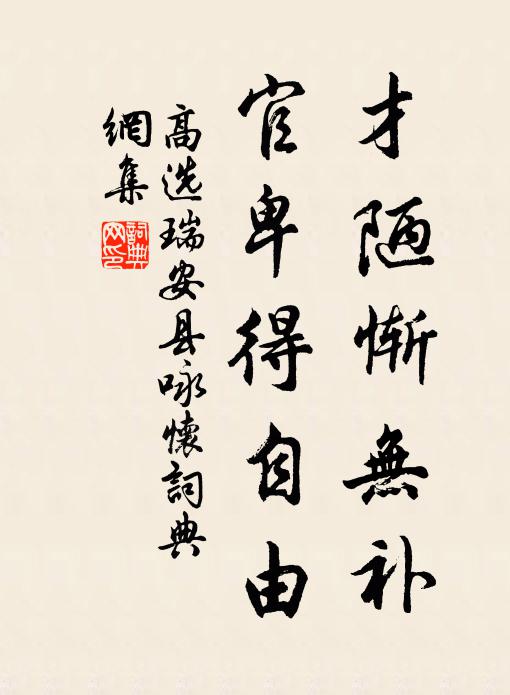 才陋慚無补
官卑得自由
高选瑞安县咏懷詞典
網集
詞典网印